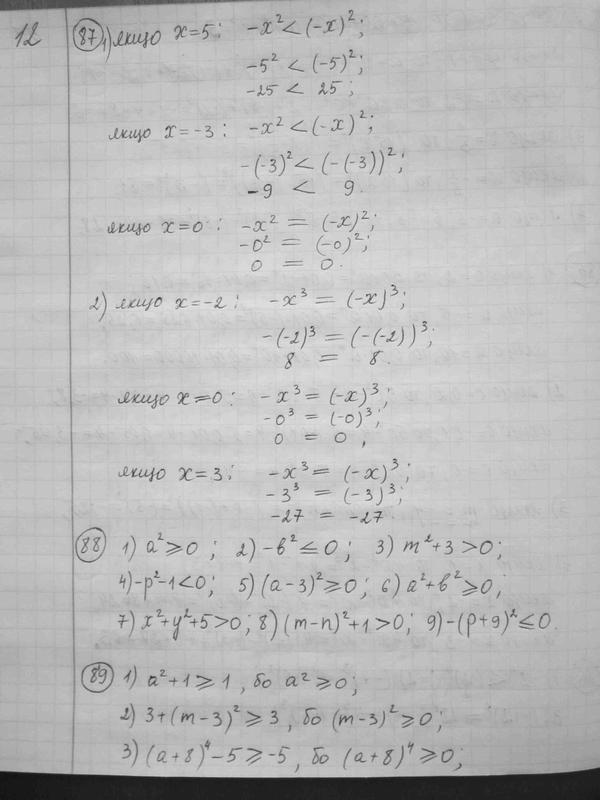 12
87 1) якщо x=5: -x² < (-x)²;
-5² < (-5)²;
-25 < 25;
якщо x=-3: -x² < (-x)²;
-(-3)² < (-(-3))²;
-9 < 9.
якщо x=0: -x² = (-x)²;
-0² = (-0)²;
0 = 0.
2) якщо x=-2: -x³ = (-x)³;
-(-2)³ = (-(-2))³;
8 = 8.
якщо x=0: -x³ = (-x)³;
-0³ = (-0)³;
0 = 0,
якщо x=3: -x³ = (-x)³;
-3³ = (-3)³;
-27 = -27.
88 1) a²⩾0; 2) -b²⩽0; 3) m²+3>0;
4) -p²-1<0; 5) (a-3)²⩾0; 6) a²+b²⩾0;
7) x²+y²+5>0; 8) (m-n)²+1>0; 9) -(p+9)²⩽0.
89 1) a²+1⩾1, бо a²⩾0;
2) 3+(m-3)²⩾3, бо (m-3)²⩾0;
3) (a+8)⁴-5⩾-5, бо (a+8)⁴⩾0;